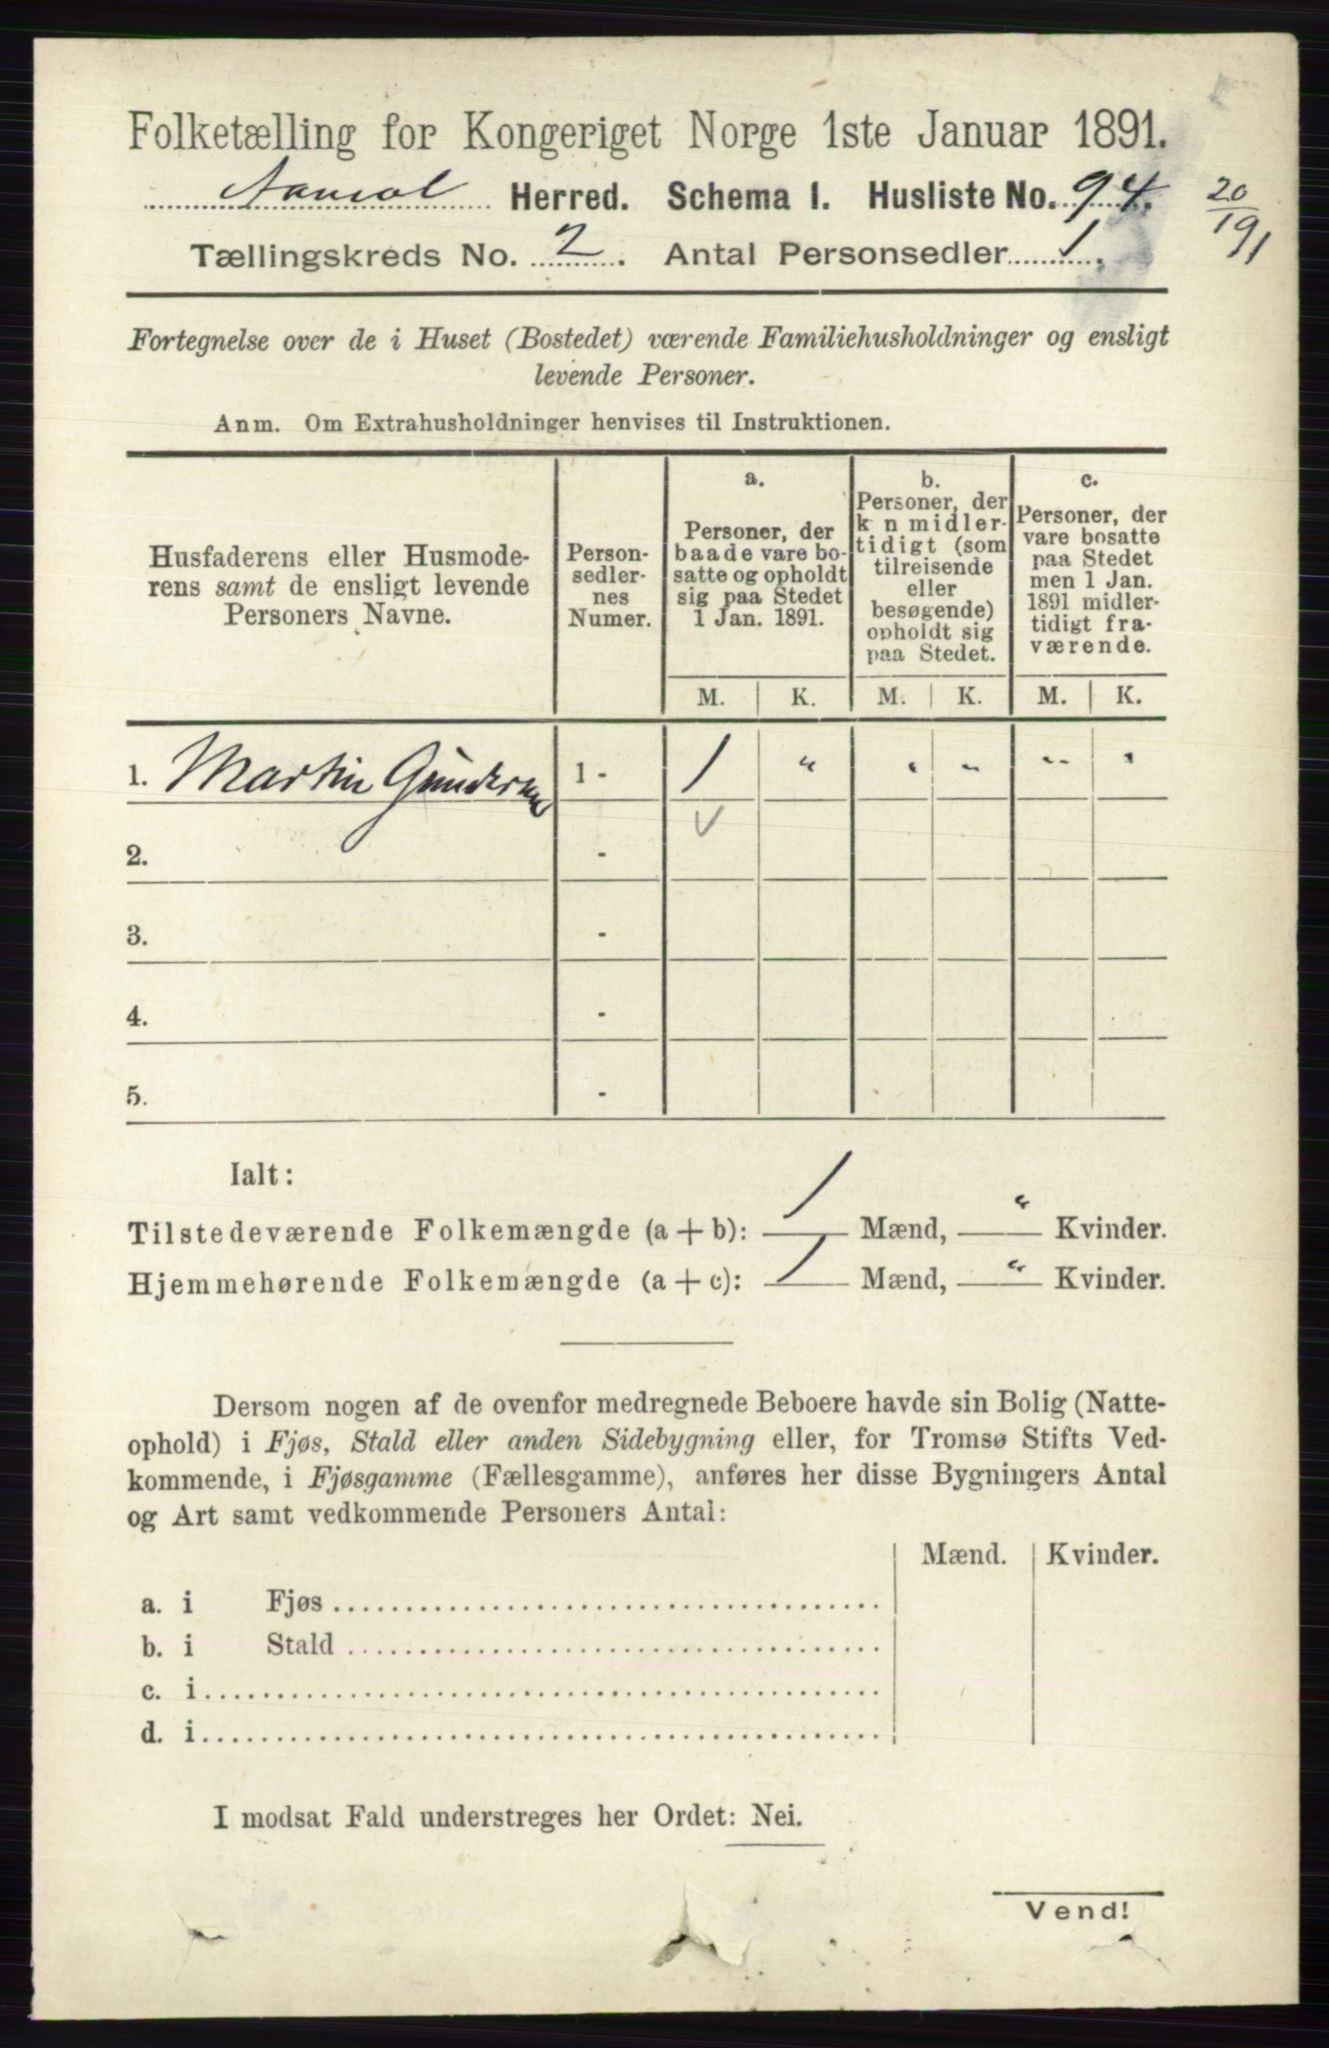 Folketælling for Kongeriget Norge 1ste Januar 1891.
Aamot Herred. Schema I. Husliste No. 94.
20/19 1
Tællingskreds No. 2. Antal Personsedler 1.
Fortegnelse over de i Huset (Bostedet) værende Familiehusholdninger og ensligt
levende Personer.
Anm. Om Extrahusholdninger henvises til Instruktionen.
Husfaderens eller Husmode-
rens samt de ensligt levende
Personers Navne.
Person-
sedler-
nes
Numer.
a.
Personer, der
baade vare bo-
satte og opholdt
sig paa Stedet
1 Jan. 1891.
b.
Personer, der
k n midler-
tidigt (som
tilreisende
eller
besøgende)
opholdt sig
paa Stedet.
c.
Personer, der
vare bosatte
paa Stedet
men 1 Jan.
1891 midler-
tidigt fra-
værende.
M. K. M. K. M. K.
1. Martin Gundersen 1 - 1 " " " " "
2. -
3. -
4. -
5. -
Ialt:
Tilstedeværende Folkemængde (a + b): 1 Mænd, " Kvinder.
Hjemmehørende Folkemængde (a + c): 1 Mænd, " Kvinder.
Dersom nogen af de ovenfor medregnede Beboere havde sin Bolig (Natte-
ophold) i Fjøs, Stald eller anden Sidebygning eller, for Tromsø Stifts Ved-
kommende, i Fjøsgamme (Fællesgamme), anføres her disse Bygningers Antal
og Art samt vedkommende Personers Antal:
Mænd. Kvinder.
a. i Fjøs
b. i Stald
c. i
d. i
I modsat Fald understreges her Ordet: Nei.
Vend!